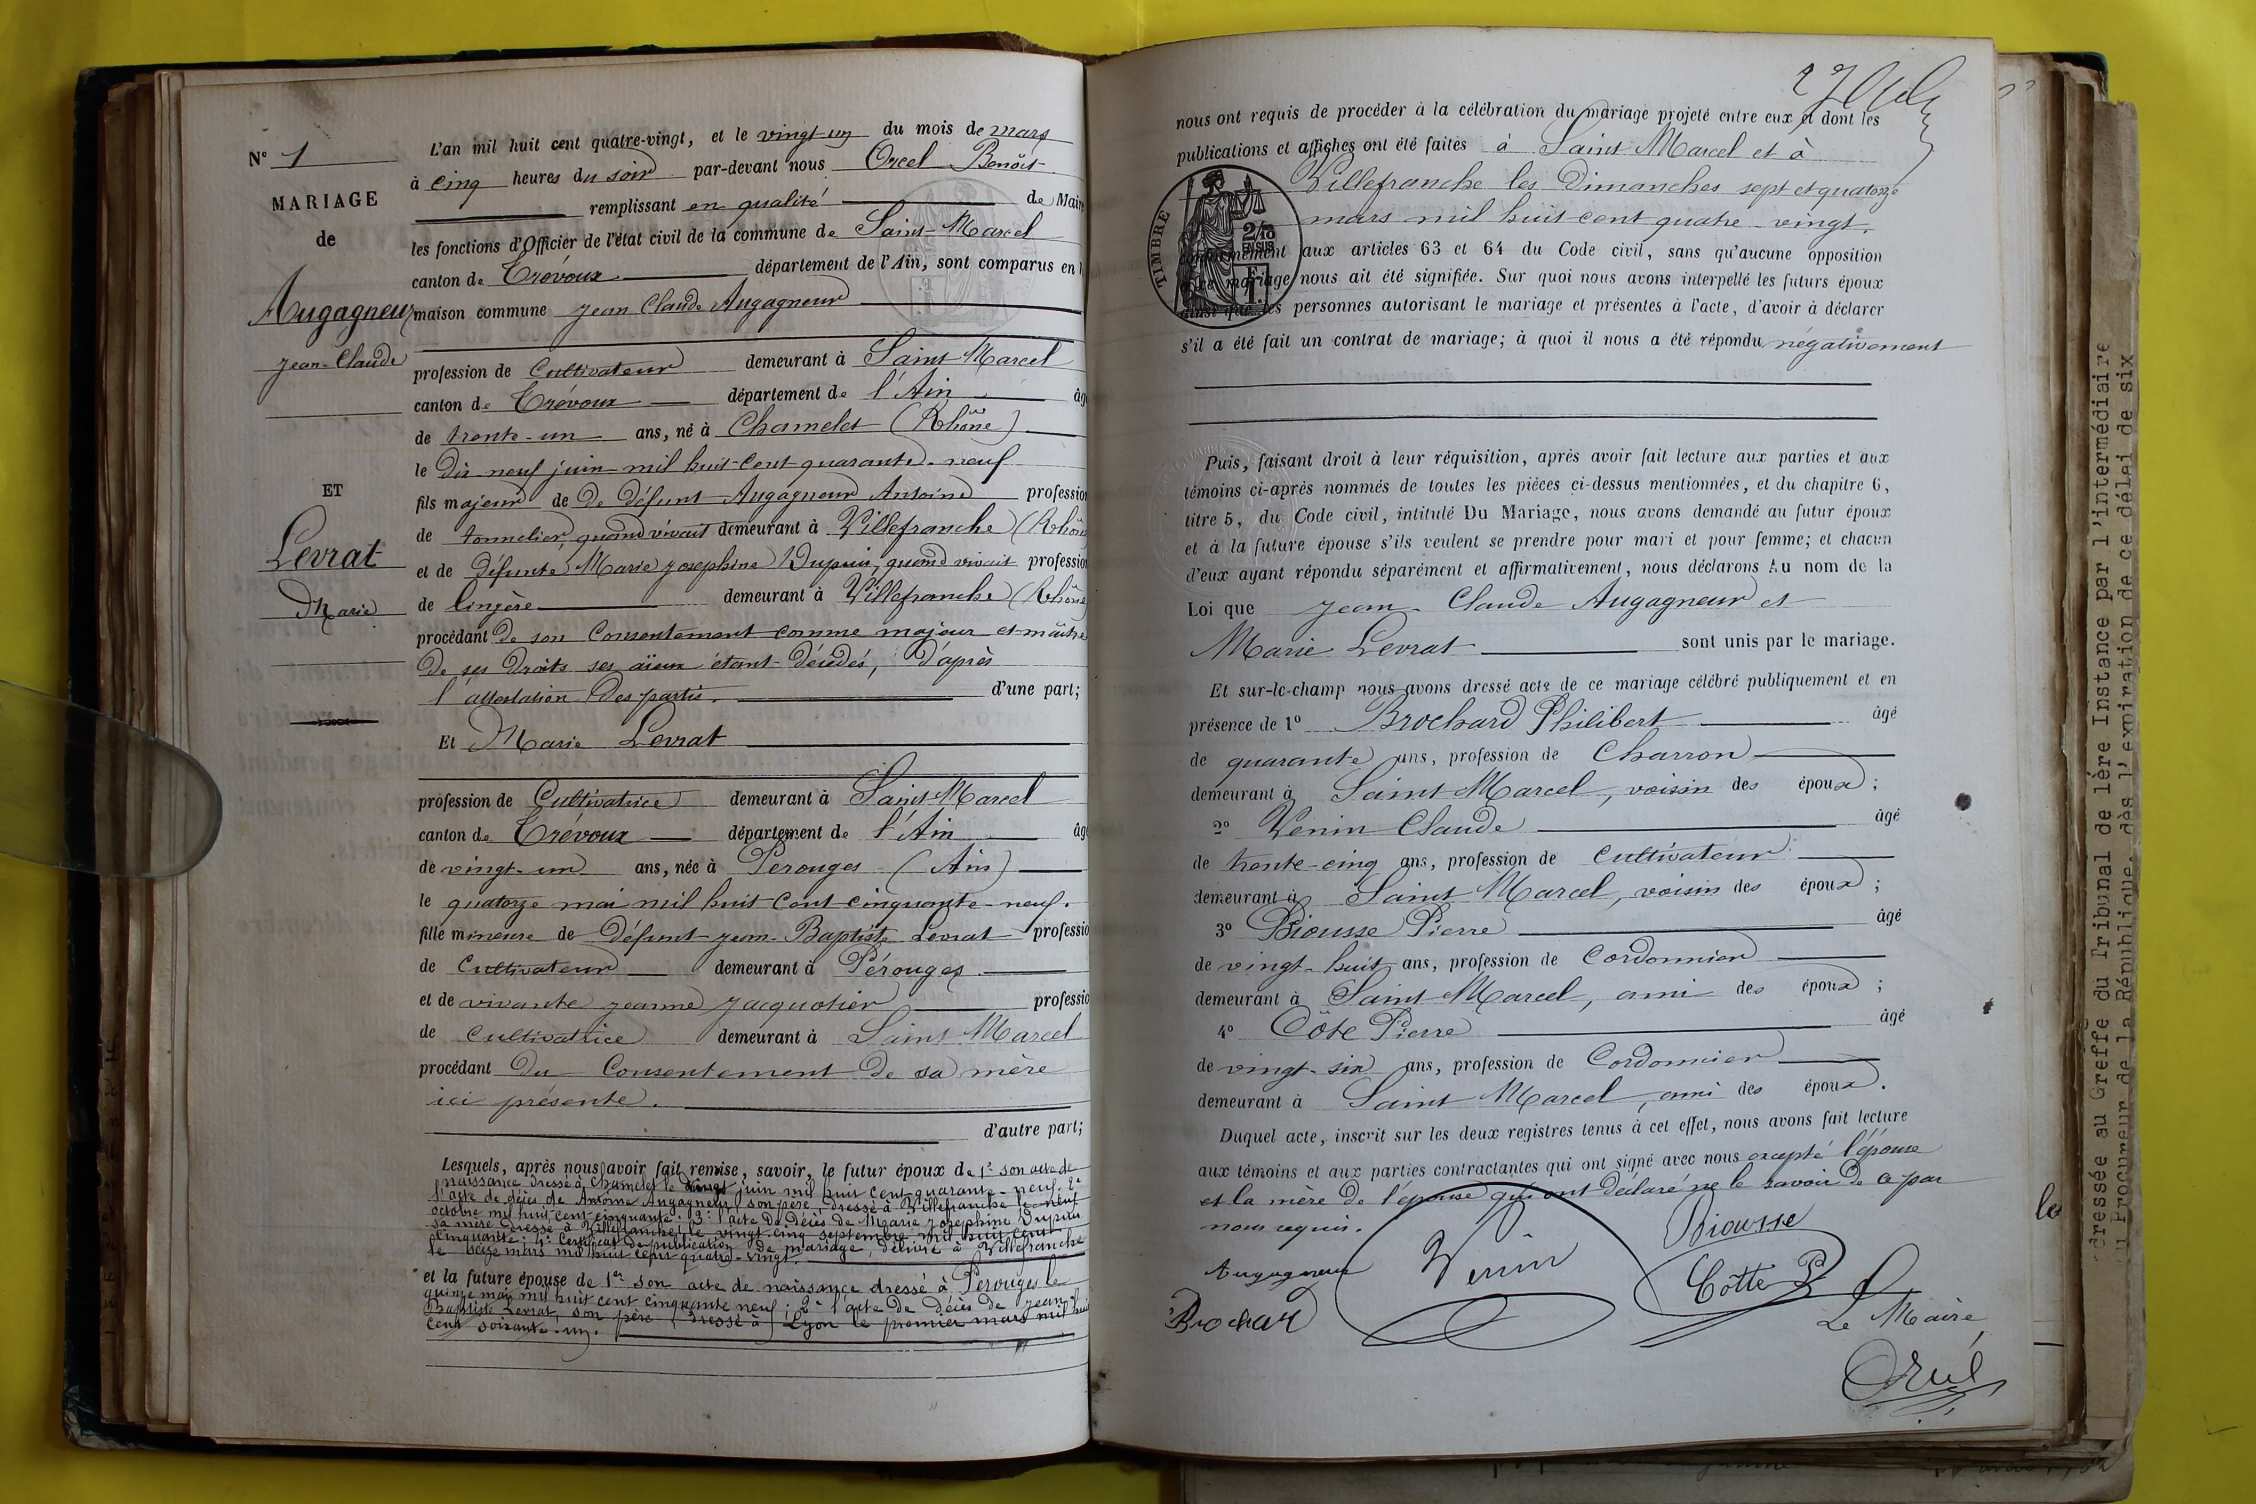 N° 1
MARIAGE
de
Augagneur
Jean-Claude
ET
Levrat
Marie
L'an mil huit cent quatre-vingt, et le vingt-un du mois de mars
à cinq heures du soir par-devant nous Orcel Benoît
remplissant en qualité de Maire
les fonctions d'Officier de l'état civil de la commune de Saint-Marcel
canton de Trévoux département de l'Ain, sont comparus en l
maison commune Jean Claude Augagneur
profession de Cultivateur demeurant à Saint Marcel
canton de Trévoux département de l'Ain âg
de trente-un ans, né à Chamelet (Rhône)
le dix neuf juin mil huit-cent quarante-neuf
fils majeur de De défunt Augagneur Antoine profession
de tonnelier, quand vivait demeurant à Villefranche (Rhône
et de Défunte Marie Josephine Dupuis, quand vivait profession
de lingère demeurant à Villefranche (Rhône
procédant de son Consentement comme majeur et maître
de ses droits ses aïeux étant décédés, d'après
l'attestation des partie. d'une part;
Et Marie Levrat
profession de Cultivatrice demeurant à Saint-Marcel
canton de Trévoux département de l'Ain âg
de vingt-un ans, née à Perouges (Ain)
le quatorze mai mil huit cent cinquante-neuf.
fille mineure de Défunt Jean-Baptiste Levrat professio
de Cultivateur demeurant à Pérouges
et de vivante Jeanne Jacquotier professio
de Cultivatrice demeurant à Saint Marcel
procédant Du Consentement De sa mère
ici présente.
d'autre part;
Lesquels, après nous avoir fait remise, savoir, le futur époux de 1° son acte de
naissance dressé à Chamelet le vingt juin mil huit cent quarante-neuf. 2°
l'acte de décès de Antoine Augagneur son père dressé à Villefranche le neuf
octobre mil huit-cent-cinquante: 3° l'acte de Décès de Marie Josephine Dupuis
sa mère dressé à Villefranche le vingt-cinq septembre mil huit cent
cinquante: 4° Certificat de publication de mariage, délivré à Villefranche
le seize mars mil huit cent quatre-vingt.
et la future épouse de 1er son acte de naissance dressé à Perouges le
quinze mai mil huit cent cinquante neuf; 2° l'acte De Décès de Jean-
Baptiste Levrat, son père (dressé à) Lyon le premier mars mil huit
cent soixante-un.
nous ont requis de procéder à la célébration du mariage projeté entre eux et dont les
publications et affiches ont été faites à Saint Marcel et à
Villefranche les Dimanches sept et quatorze
mars mil huit cent quatre-vingt.
TIMBRE
2/10
EN SUS
conformément aux articles 63 et 64 du Code civil, sans qu'aucune opposition
mariage nous ait été signifiée. Sur quoi nous avons interpellé les futurs époux
ainsi que les personnes autorisant le mariage et présentes à l'acte, d'avoir à déclarer
s'il a été fait un contrat de mariage; à quoi il nous a été répondu négativement
Puis, faisant droit à leur réquisition, après avoir fait lecture aux parties et aux
témoins ci-après nommés de toutes les pièces ci-dessus mentionnées, et du chapitre 6,
titre 5, du Code civil, intitulé Du Mariage, nous avons demandé au futur époux
et à la future épouse s'ils veulent se prendre pour mari et pour femme; et chacun
d'eux ayant répondu séparément et affirmativement, nous déclarons Au nom de la
Loi que Jean-Claude Augagneur et
Marie Levrat sont unis par le mariage.
Et sur-le-champ nous avons dressé acte de ce mariage célébré publiquement et en
présence de 1° Brochard Philibert âgé
de quarante ans, profession de Charron
demeurant à Saint Marcel, voisin des époux;
2° Venin Claude âgé
de trente-cinq ans, profession de Cultivateur
demeurant à Saint Marcel, voisin des époux;
3° Biousse Pierre âgé
de vingt-huit ans, profession de Cordonnier
demeurant à Saint Marcel, ami des époux;
4° Côte Pierre âgé
de vingt-six ans, profession de Cordonnier
demeurant à Saint Marcel, ami des époux.
Duquel acte, inscrit sur les deux registres tenus à cet effet, nous avons fait lecture
aux témoins et aux parties contractantes qui ont signé avec nous excepté l'épouse
et la mère De l'épouse qui ont déclaré ne le savoir De ce par
nous requis.
Biousse
Venin
Augagneur
Cotte P
Brochard
Le Maire
Orcel
dressée au Greffe du Tribunal de 1ère Instance par l'intermédiaire
u Procureur de la République, dès l'expiration de ce délai de six